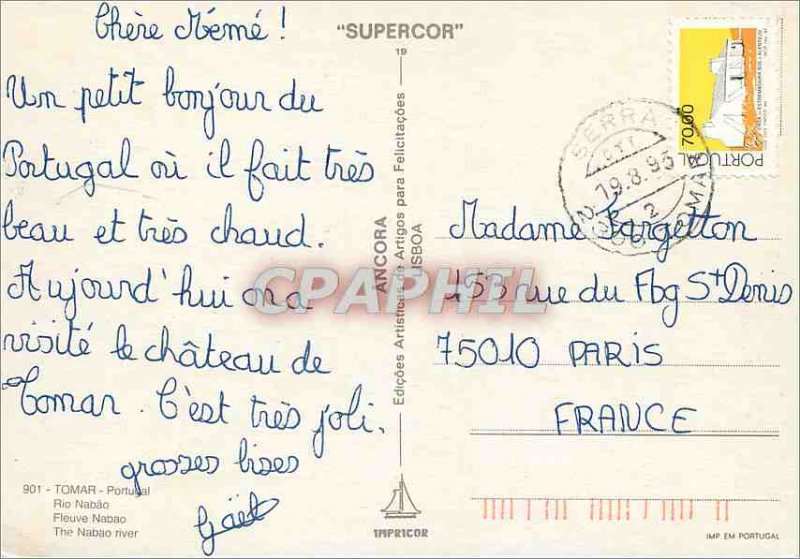 Chère Mémé !
Un petit bonjour du
Portugal où il fait très
beau et très chaud.
Aujourd'hui on a
visité le château de
Tomar. C'est très joli.
grosses bises
Gaël
901 - TOMAR - Portugal
Rio Nabão
Fleuve Nabao
The Nabao river
"SUPERCOR"
19
Edições Artísticas de Artigos para Felicitações
ANCORA
LISBOA
IMPRICOR
CPAPHIL
70,00
PORTUGAL
SERRA
CTT
19.8.95
TOMAR
Madame Largetton
153 rue du Fbg St Denis
75010 PARIS
FRANCE
IMP EM PORTUGAL